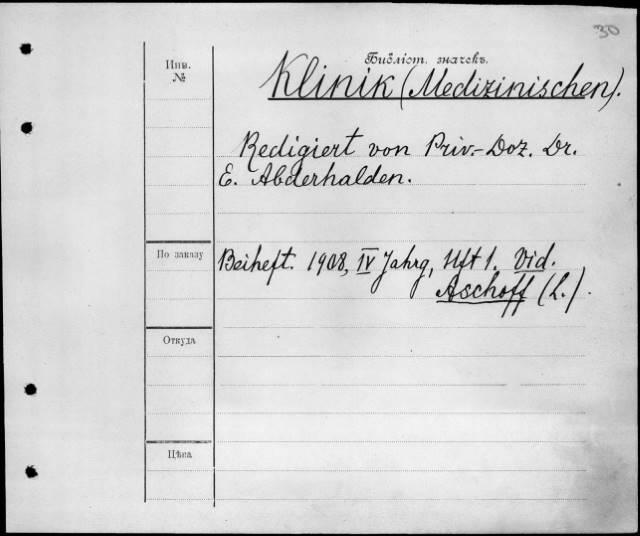 30
Инв.
№
Библіот. значекъ.
Klinik (Medizinischen).
Redigiert von Priv.-Doz. Dr.
E. Abderhalden.
По заказу
Beiheft. 1908, IV Jahrg, Hft 1. Vid.
Aschoff (L.).
Откуда
Цѣна